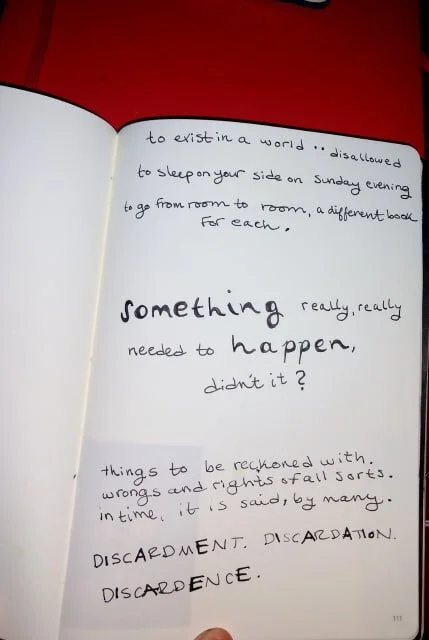 to exist in a world .. disallowed
to sleep on your side on Sunday evening
to go from room to room, a different book
for each.
something really, really
needed to happen,
didn't it?
things to be reckoned with.
wrongs and rights of all sorts.
in time, it is said, by many.
DISCARDMENT. DISCARDATION.
DISCARDENCE.